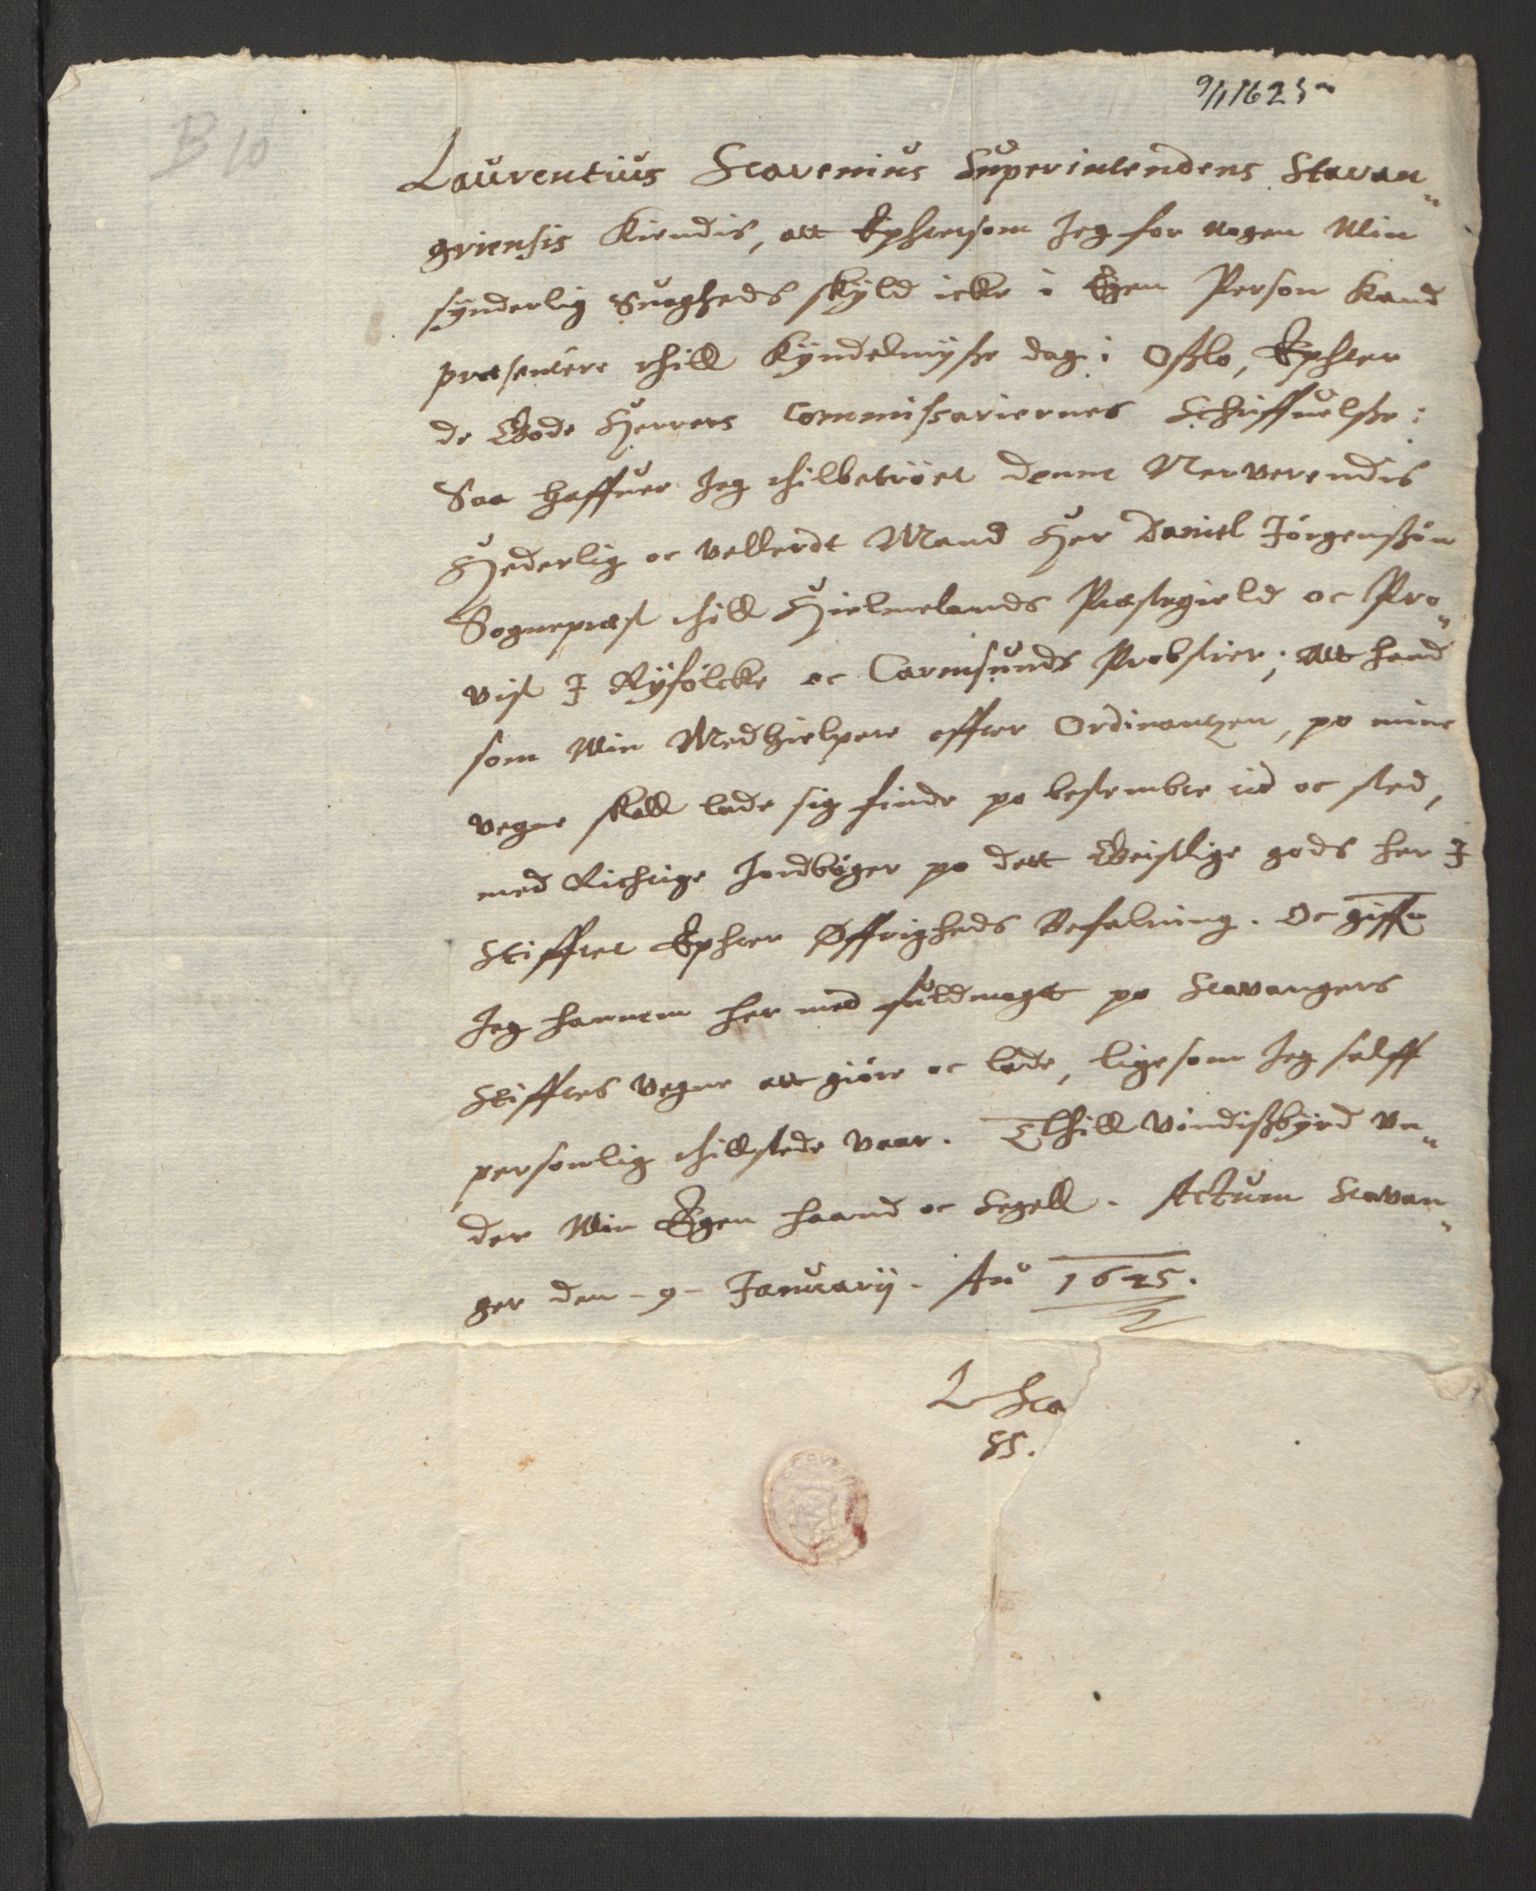 9/1 1625
B 10
Laurentius Scavenius Superintendens Stavan„
griensis Kiendis, att Ephtersom Jeg for nogen Min
synderlig Suagheds skyld icke i Egen Person kand
præsentere thill Kyndelmysse dag i Osslo, Ephter
de Gode Herrers Commissariernes Schriffuelsse:
Saa haffuer Jeg thilbetroet denne Nerverendis
Hederlig oc vellerdt Mand Her Daniel Jörgenssön
Sognepræst thill Hielmelands Præstegield oc Pro„
vist I Ryfölcke oc Carmsunds Probstier; Att hand
som Min Medhielpere effter Ordinantzen, po mine
vegne skall lade sig finde po bestembte tid oc sted,
med Richtige Jordböger po dett Geistlige gods her I
Stifftet Ephter Øffrigheds Befalning. Oc giffr
Jeg hannem her med fuldmagtt po Stavangers
Stifftes vegne att giöre oc lade, ligesom Jeg selff
personlig thillstede vaar. Thill Vindissbyrd Vn„
der Min Egen haand oc Segell. Actum Stavan„
ger den - 9 - Januarij. Ao 1625.
L Sca
SS.